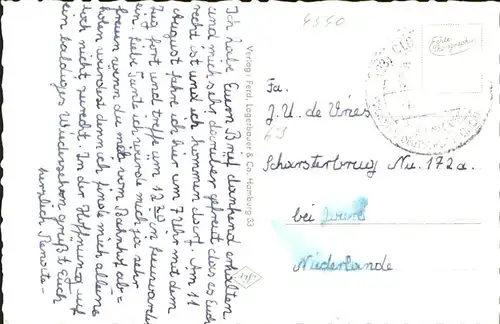 Ich habe Euern Brief dankend erhalten
und mich sehr darüber gefreut, das es Euch
recht ist und ich kommen darf. Am 11
August fahre ich hier um 7 Uhr mit dem
Zug fort und treffe um 1239 in Leeuwarden
ein. Liebe Tante ich würde mich ja sehr
freuen wenn du mich vom Bahnhof ab=
holen würdest denn ich finde mich alleine
doch nicht zurecht. In der Hoffnung auf
ein baldiges Wiedersehen grüßt Euch
herzlich Renate
Verlag: Ferd. Lagerbauer & Co. Hamburg 33
4540
Echte Photographie
Fa.
J. U. de Vries
63
Scharsterbrug Nu. 172a.
bei
Niederlande